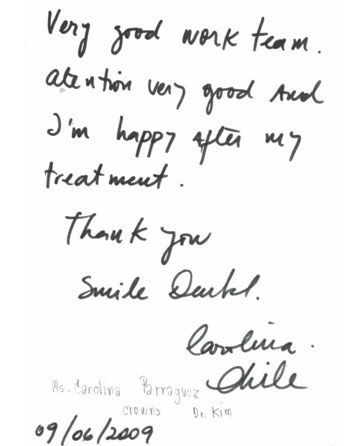 Very good work team.
atention very good And
I'm happy after my
treatment.
Thank you
Smile Dental.
Carolina.
Chile
Ms. Carolina Parraguez
crowns Dr. Kim
09/06/2009